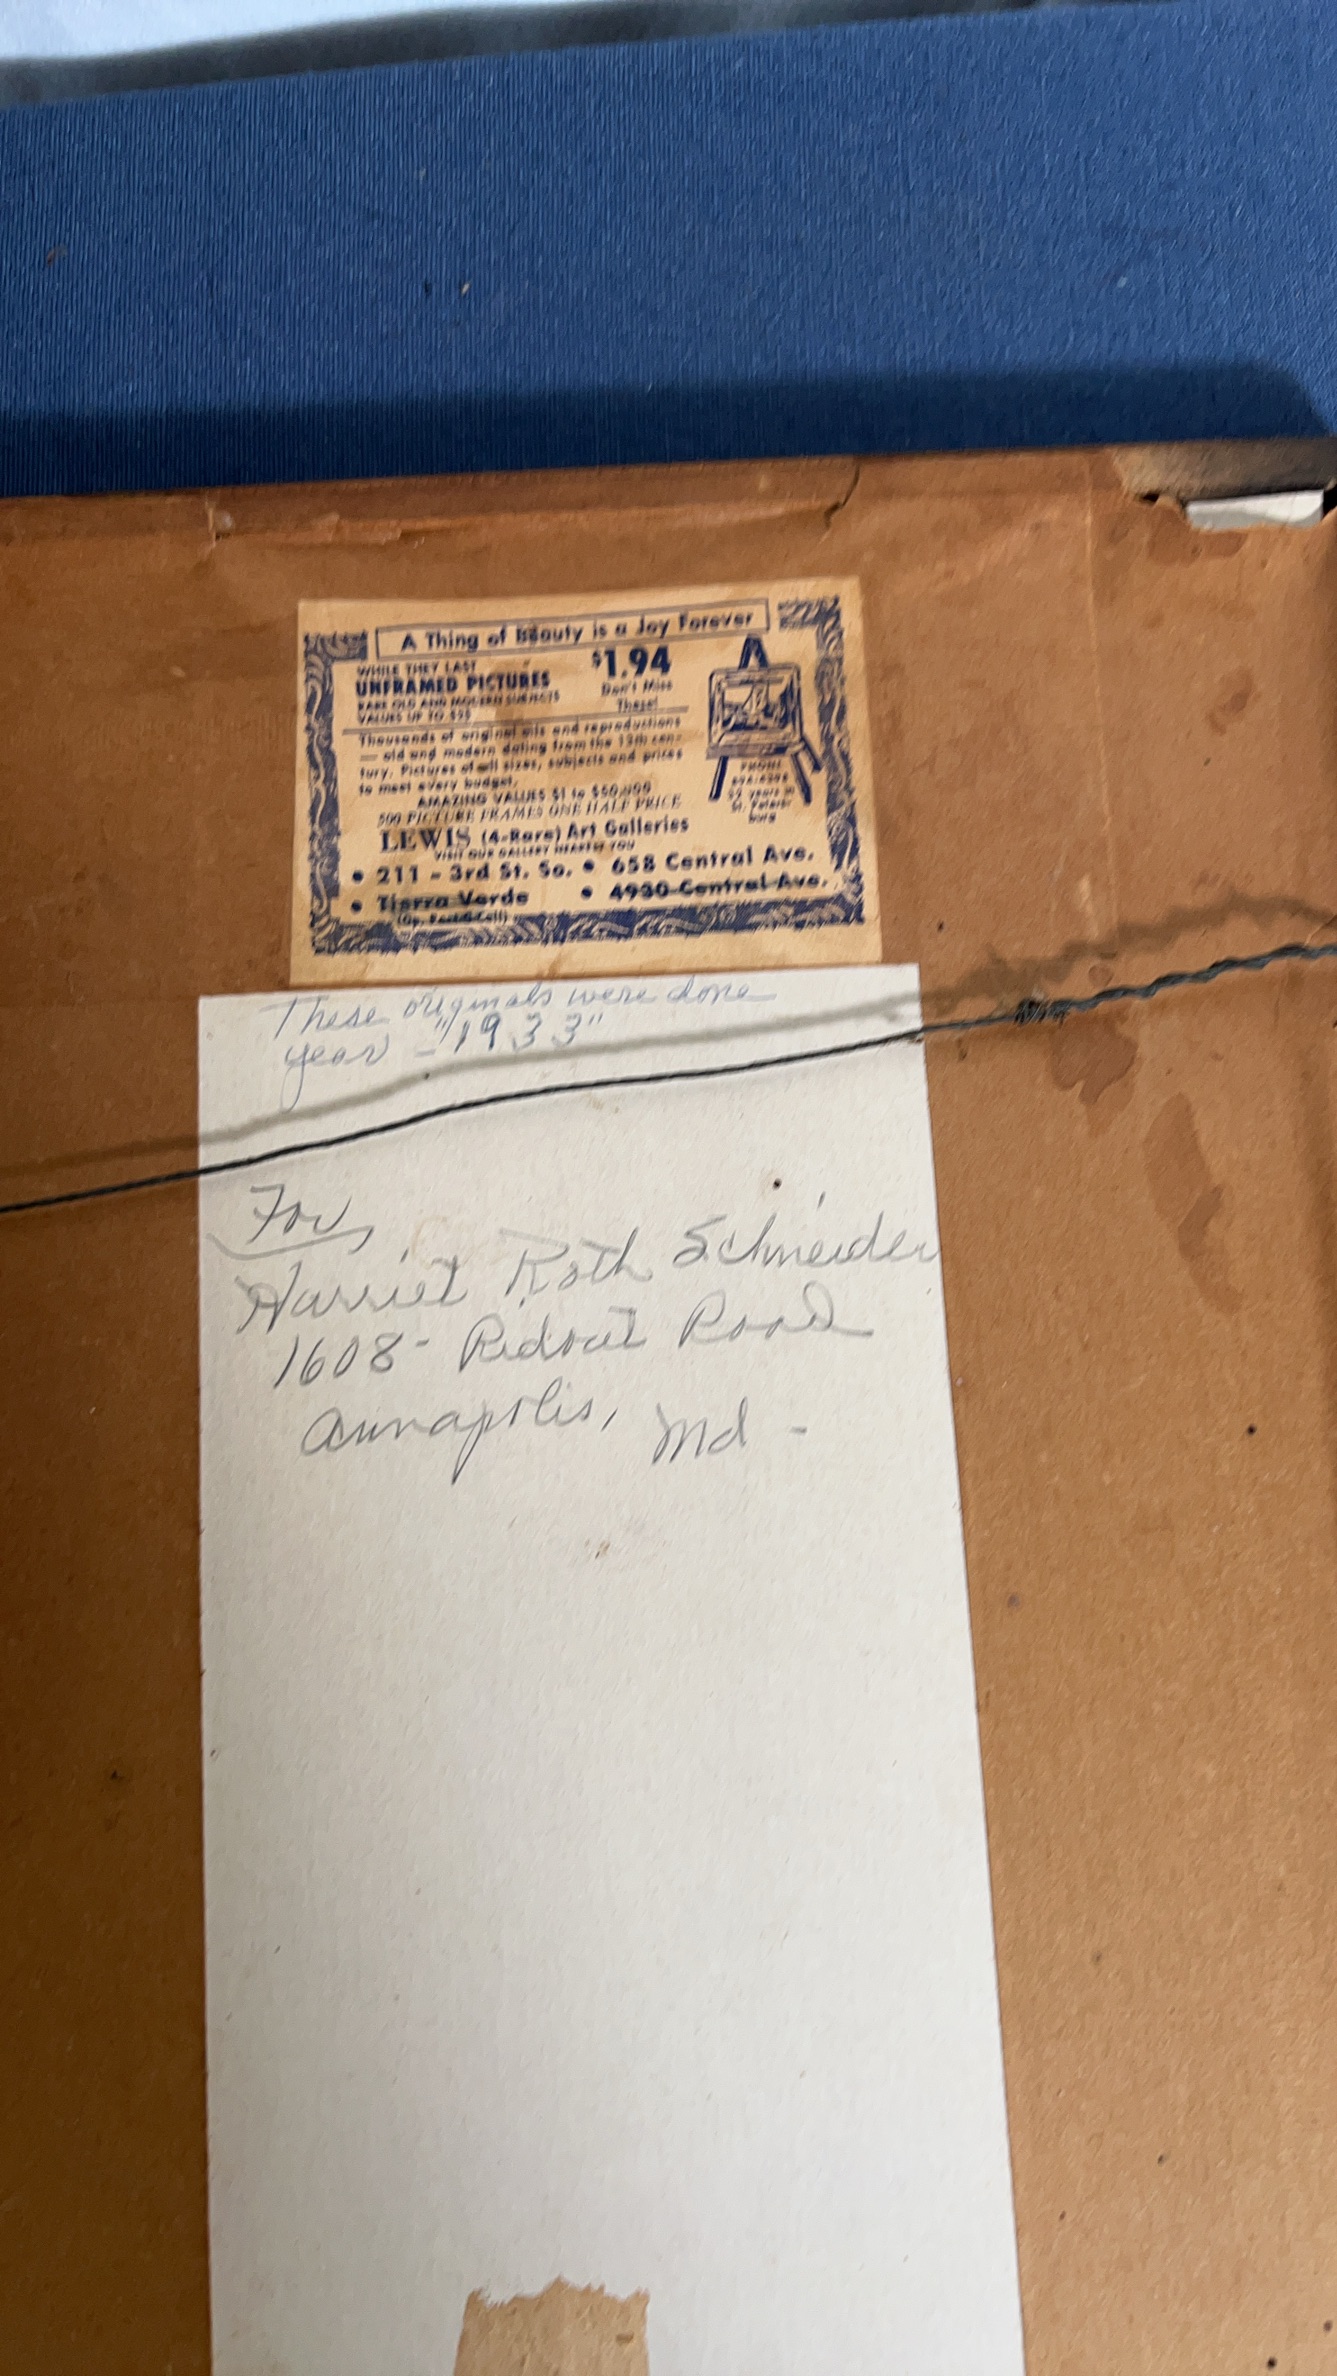 A Thing of Beauty is a Joy Forever
WHILE THEY LAST
UNFRAMED PICTURES
RARE OLD AND MODERN SUBJECTS
VALUES UP TO $95
$1.94
Don't Miss
These!
Thousands of original oils and reproductions
— old and modern dating from the 13th cen-
tury. Pictures of all sizes, subjects and prices
to meet every budget.
AMAZING VALUES $1 to $50,000
500 PICTURE FRAMES ONE HALF PRICE
PHONE
years in
St. Peters-
burg
LEWIS (4-Rare) Art Galleries
VISIT OUR GALLERY NEAREST YOU
• 211 - 3rd St. So. • 658 Central Ave.
• Tierra Verde • 4930 Central Ave.
These originals were done
year - "1933"
For,
Harriet Roth Schneider
1608 - Ridout Road
Annapolis, Md -